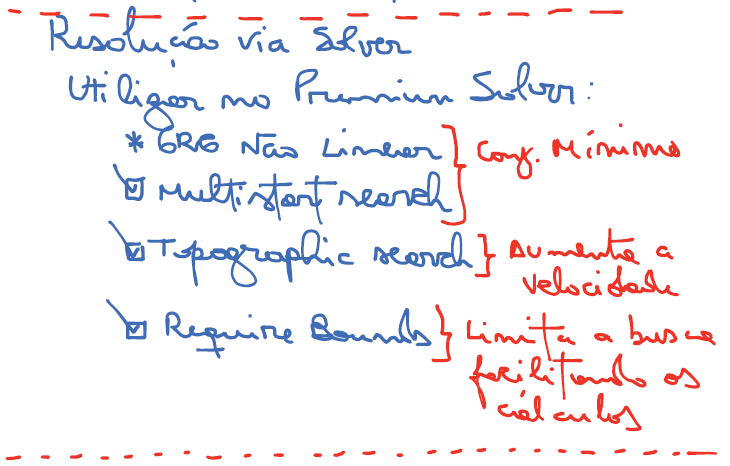 Resolução via Solver
Utilizar no Premium Solver:
* GRG Não Linear
Multistart search
Conf. Mínima
Topographic search
Aumenta a
velocidade
Require Bounds
Limita a busca
facilitando os
cálculos